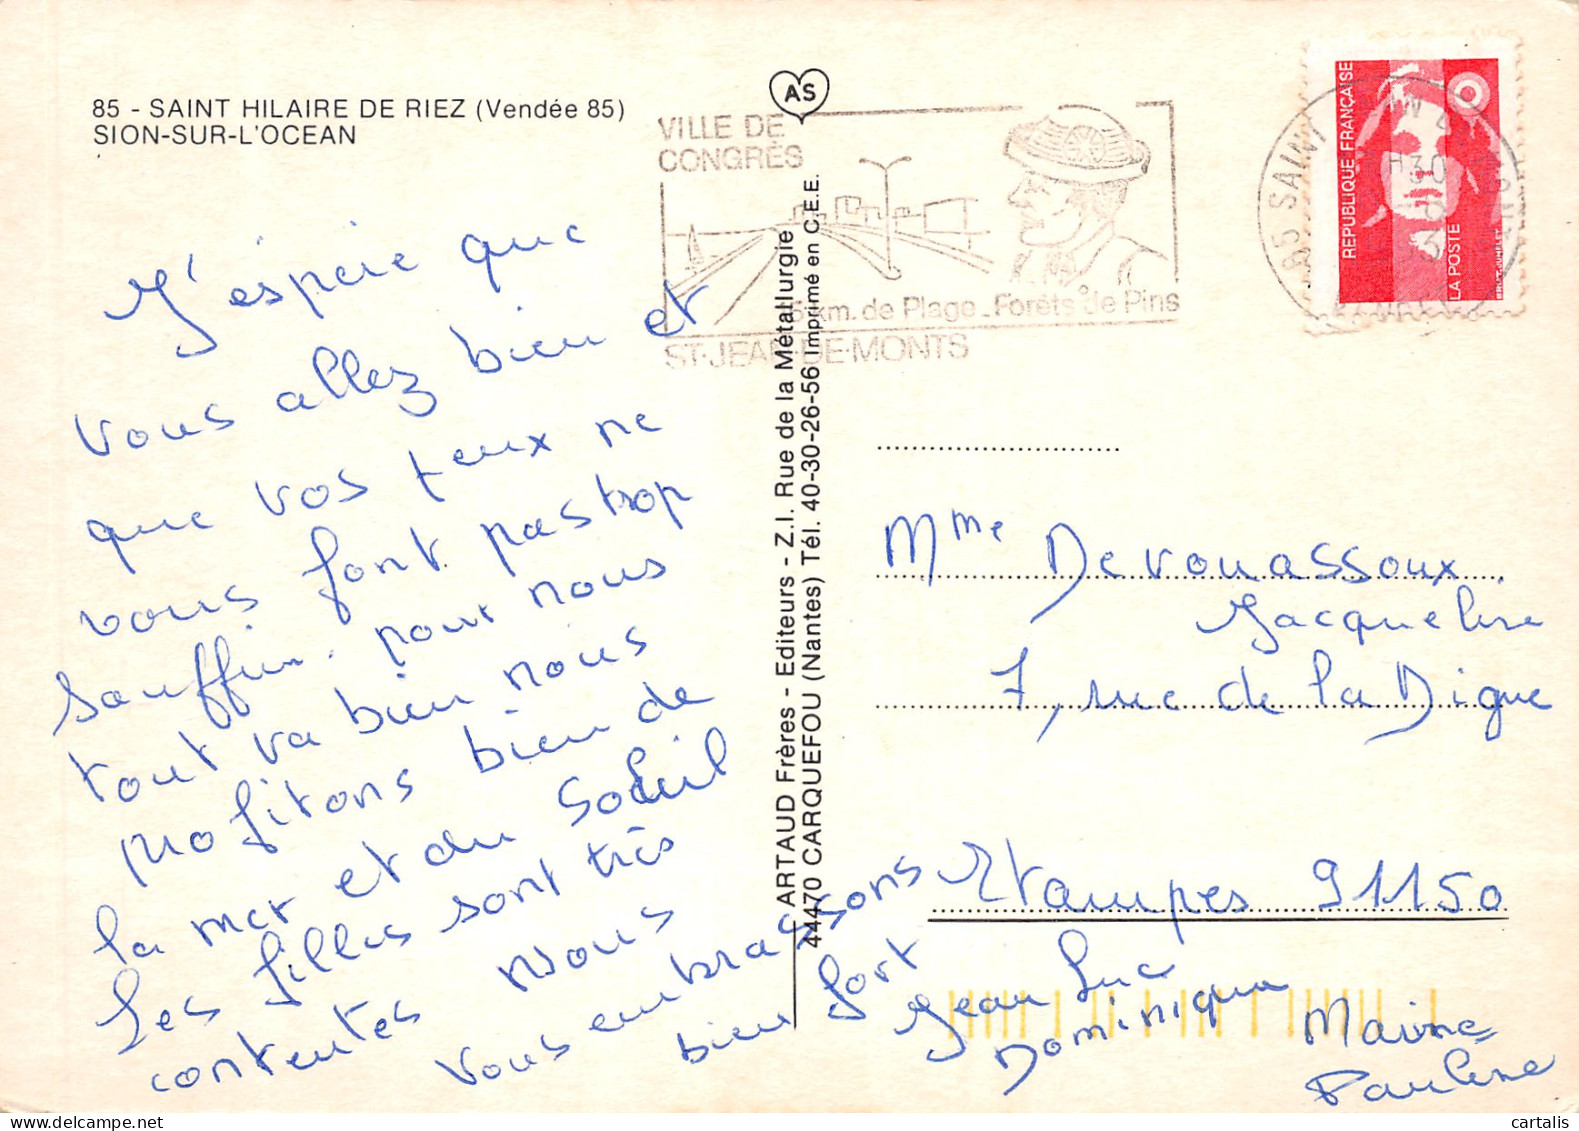 85 - SAINT HILAIRE DE RIEZ (Vendée 85)
SION-SUR-L'OCEAN
AS
VILLE DE
CONGRÈS
km. de Plage_Forêts de Pins
ST-JEAN-DE-MONTS
85 SAINT
H30
REPUBLIQUE FRANÇAISE
LA POSTE
J'espère que
vous allez bien et
que vos yeux ne
vous font pas trop
souffrir. pour nous
tout va bien nous
profitons bien de
la mer et du soleil
Les filles sont très
contentes Nous
vous embrassons
bien fort
Jean Luc
Dominique
Marine
Pauline
ARTAUD Frères - Editeurs - Z.I. Rue de la Métallurgie
44470 CARQUEFOU (Nantes) Tél. 40-30-26-56 Imprimé en C.E.E.
Mme Devouassoux
Jacqueline
7, rue de la Digue
Etampes 91150
cartalis